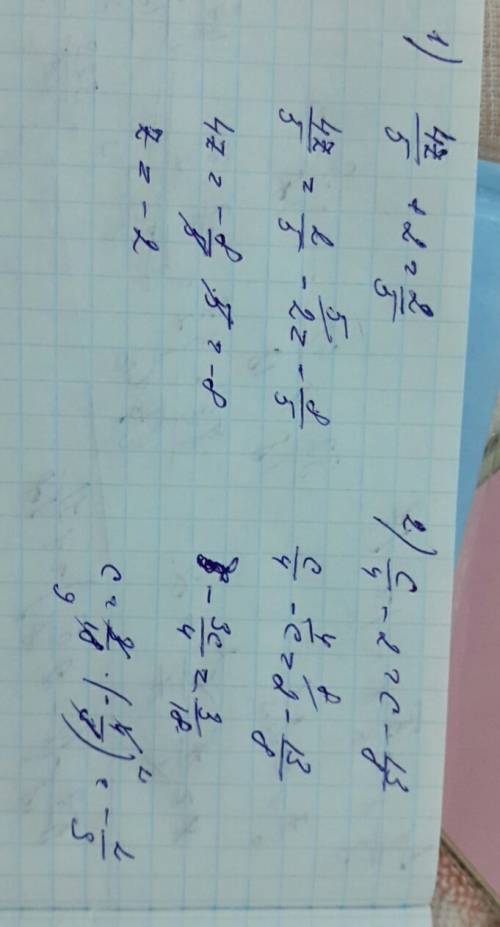 1)
4z/5 + 2 = 2/5
4z/5 = 2/5 - 2 = -8/5
4z = -8/5 · 5 = -8
z = -2
2) c/4 - 2 = c - 13/8
c/4 - c = 2 - 13/8
- 3c/4 = 3/